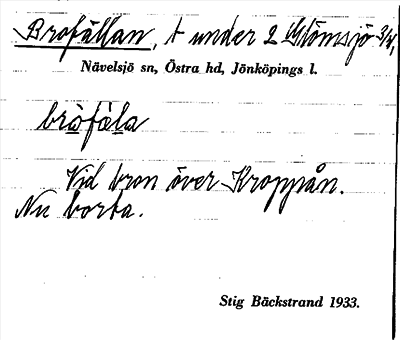 Brofällan, t under 2 Glömsjö 3/4,
Nävelsjö sn, Östra hd, Jönköpings l.
bròfä̀la
Vid bron över Kroppån.
Nu borta.
Stig Bäckstrand 1933.